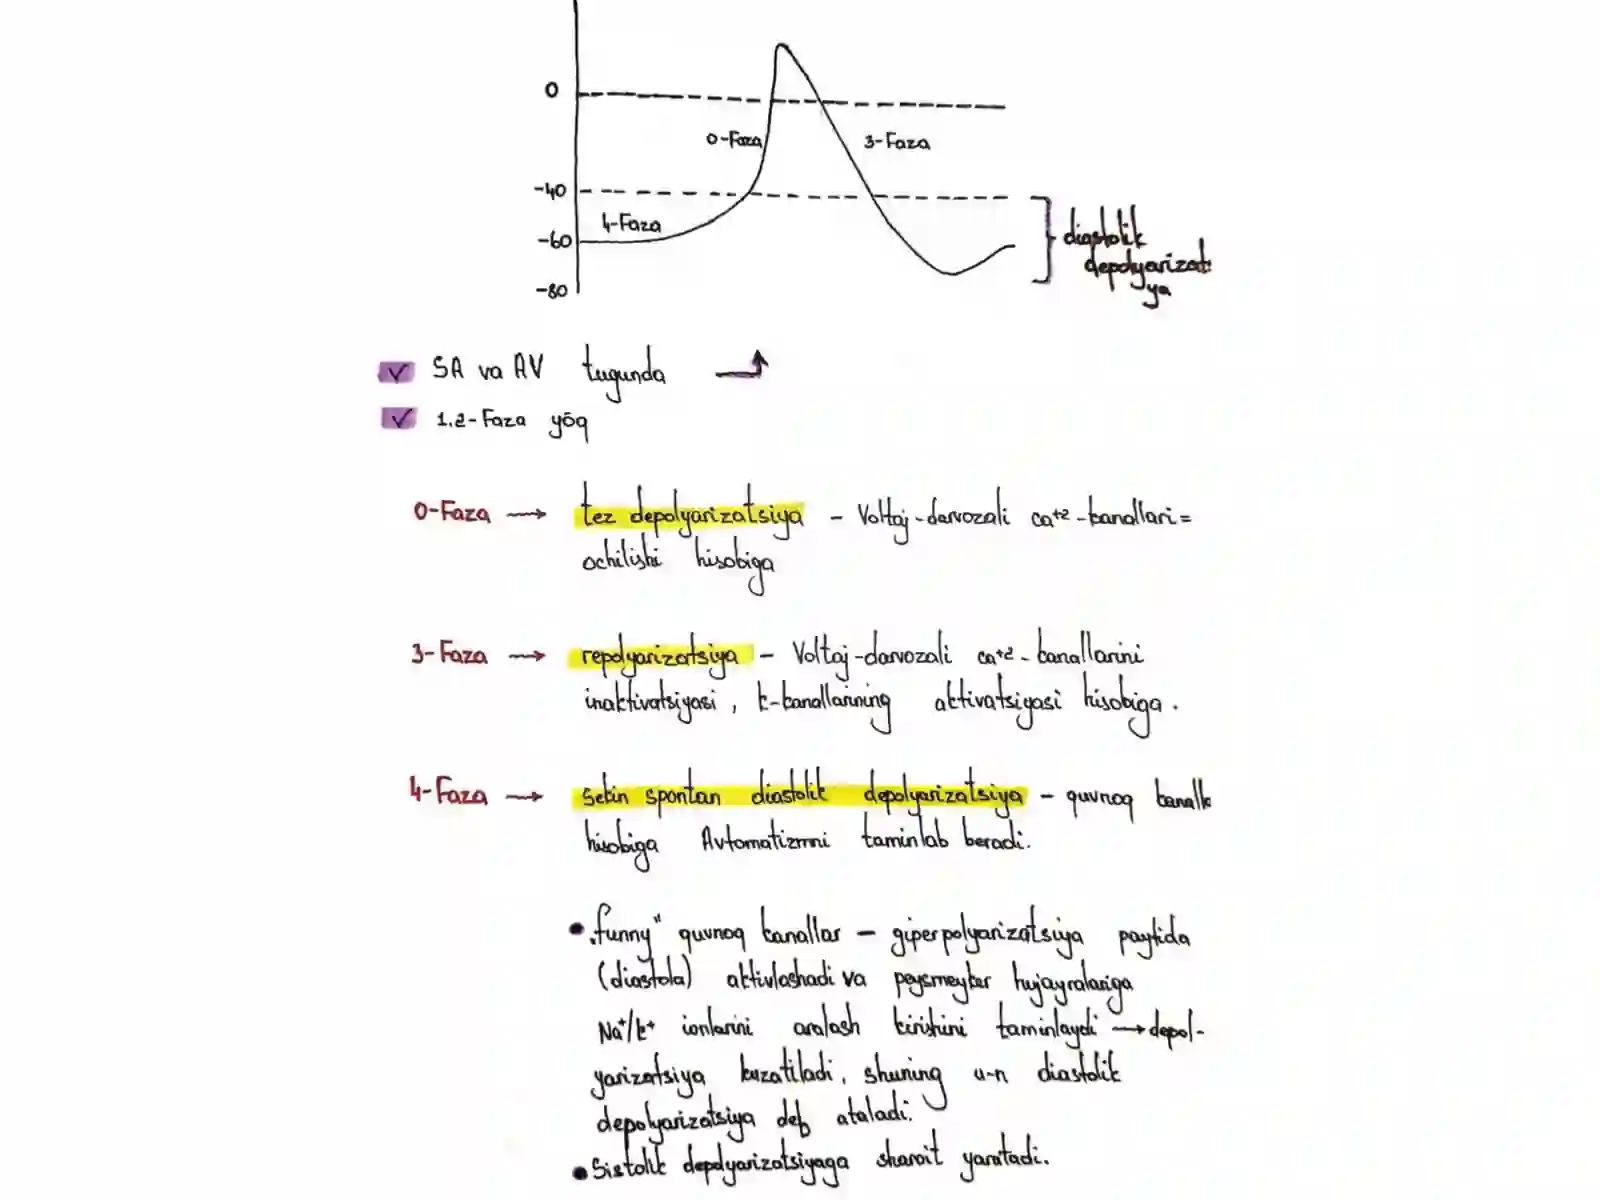 0
0-Faza
3-Faza
-40
4-Faza
-60
-80
diastolik
depolyarizat
ya
SA va AV tugunda
1.2-Faza yōq
0-Faza → tez depolyarizatsiya - Voltaj-darvozali ca+2-kanallari=
ochilishi hisobiga
3-Faza → repolyarizatsiya - Voltaj-darvozali ca+2-kanallarini
inaktivatsiyasi, k-kanallarining aktivatsiyasi hisobiga.
4-Faza → Sekin spontan diastolik depolyarizatsiya - quvnoq kanalla
hisobiga Avtomatizmni taminlab beradi.
• „funny" quvnoq kanallar - giperpolyarizatsiya paytida
(diastola) aktivlashadi va peysmeyker hujayralariga
Na+/k+ ionlarini aralash kirishini taminlaydi → depol-
yarizatsiya kuzatiladi, shuning u-n diastolik
depolyarizatsiya deb ataladi.
• Sistolik depolyarizatsiyaga sharoit yaratadi.